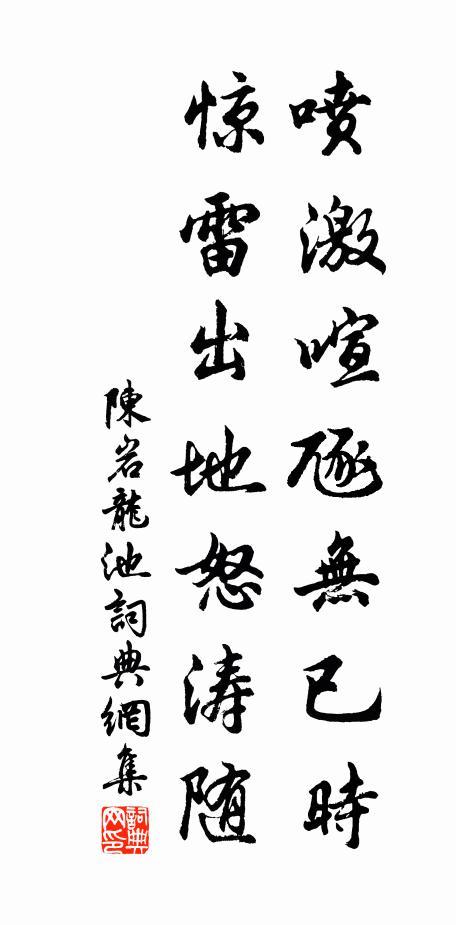 喷激喧豗無已時
惊雷出地怒涛随
陳岩龍池詞典網集
詞典网印